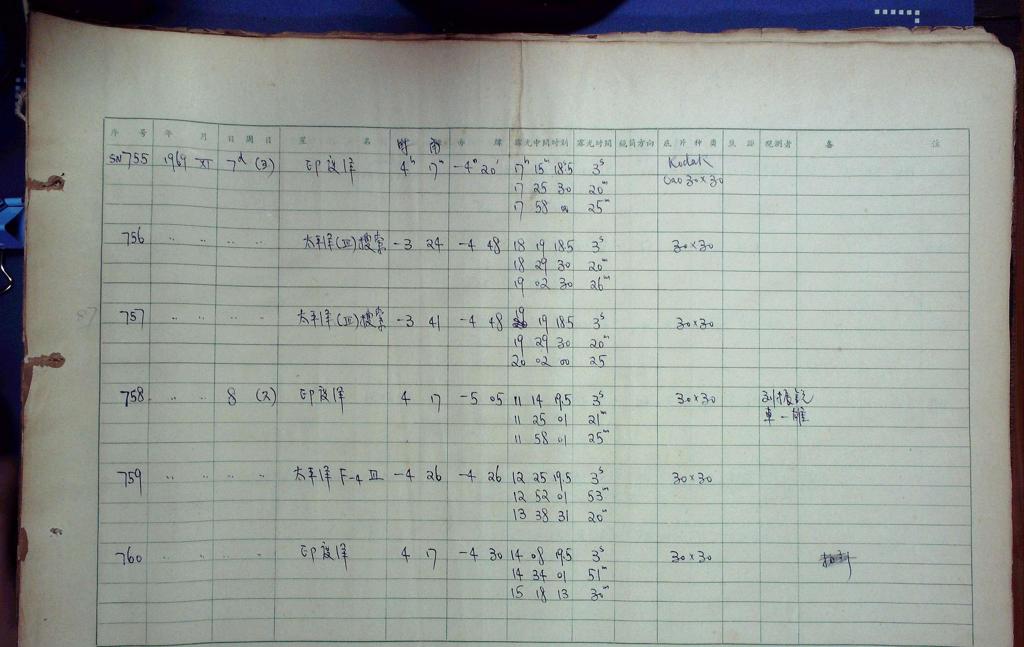 序 号 年 月 日 期 星 名 时 角 赤 纬 露光中间时刻 露光时间 镜筒方向 底片种类 观测者 备 注
SN755 1969 XI 7d (3) 印度洋 4h 7m -4° 20' 17h 15m 18.5 3s Kodak
17 25 30 20m Oao 30×30
17 58 00 25m
756 .. .. .. .. 太平洋(III)搜索 -3 24 -4 48 18 19 18.5 3s 30×30
18 29 30 20m
19 02 30 26m
757 .. .. .. .. 太平洋(III)搜索 -3 41 -4 48 19 19 18.5 3s 30×30
19 29 30 20m
20 02 00 25
758 .. .. 8 (2) 印度洋 4 17 -5 05 11 14 19.5 3s 30×30 刘振锐
11 25 01 21m 車一雄
11 58 01 25m
759 .. .. .. .. 太平洋 F-4 III -4 26 -4 26 12 25 19.5 3s 30×30
12 52 01 53m
13 38 31 20m
760 .. .. .. .. 印度洋 4 17 -4 30 14 08 19.5 3s 30×30
14 34 01 51m
15 18 13 30m